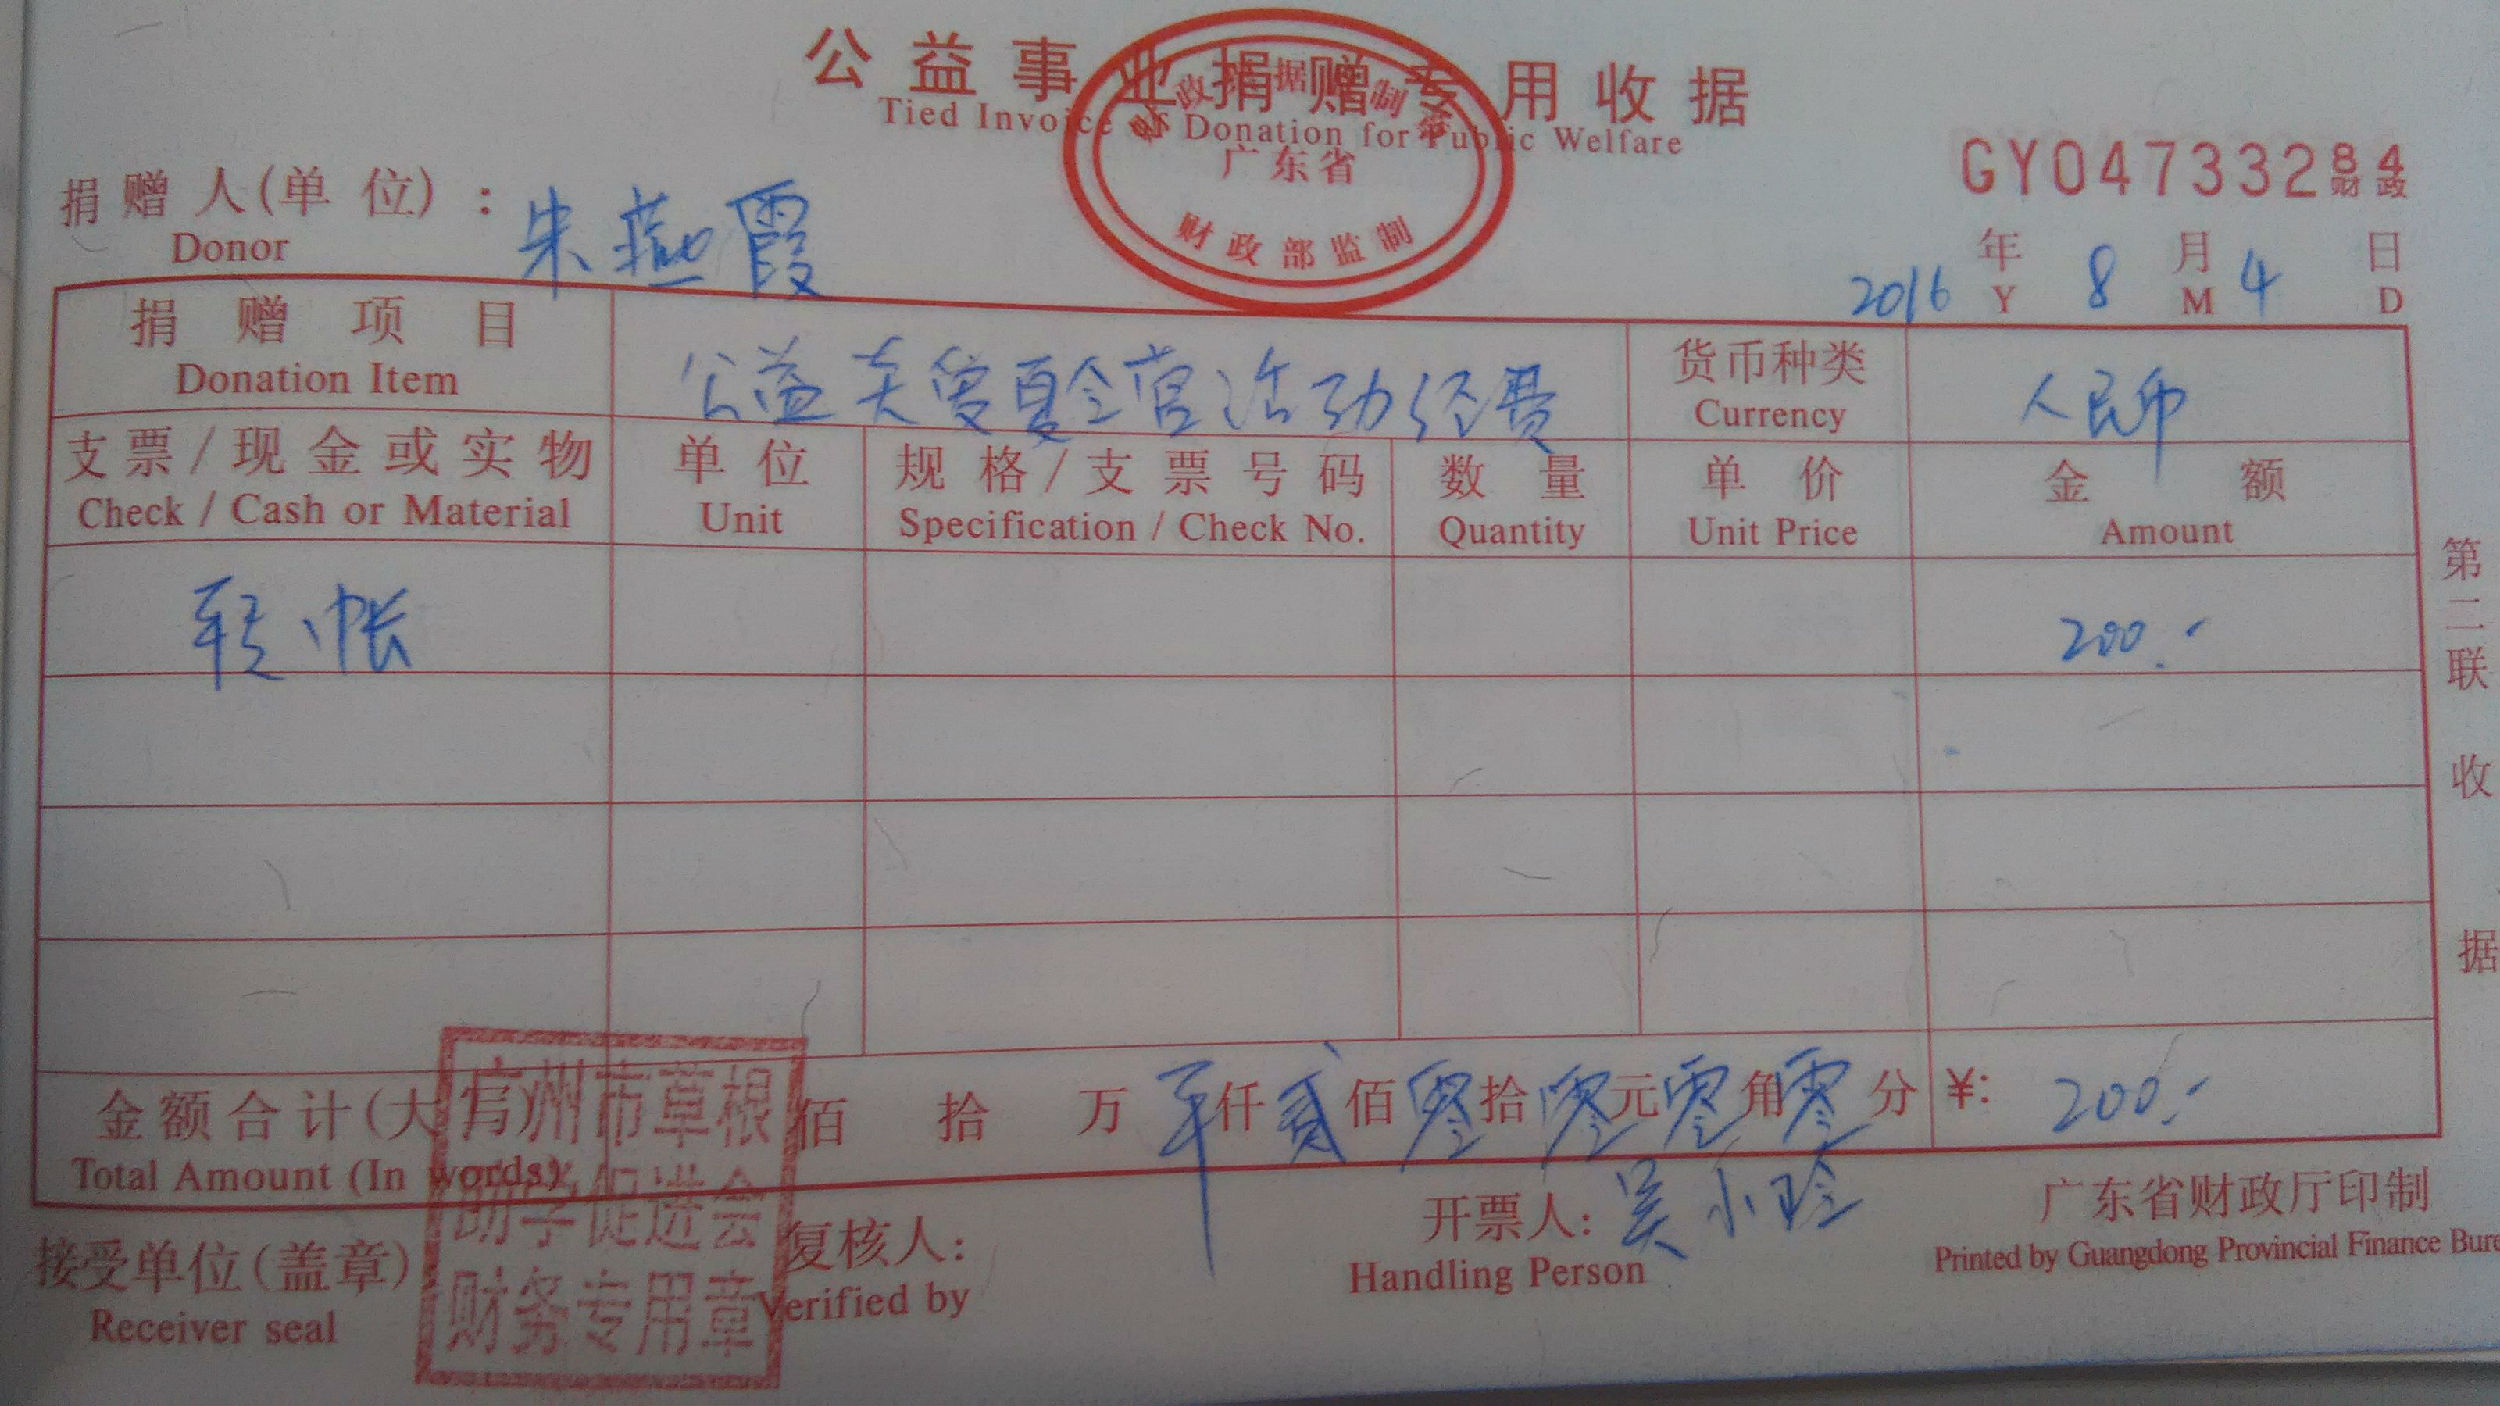 公益事业捐赠专用收据
Tied Invoice of Donation for Public Welfare
财政票据监制章
广东省
财政部监制
GY04733284
财政
捐赠人(单位):朱燕霞
Donor
2016年8月4日
Y M D
捐赠项目 公益关爱夏令营活动经费 货币种类 人民币
Donation Item Currency
支票/现金或实物 单位 规格/支票号码 数量 单价 金额
Check / Cash or Material Unit Specification / Check No. Quantity Unit Price Amount
转帐 200.-
第二联 收据
金额合计(大写) 佰 拾 万 仟 贰 佰 零 拾 零 元 零 角 零 分 ¥: 200.-
Total Amount (In words)
广州市草根
助学促进会
财务专用章
接受单位(盖章) 复核人: 开票人:吴小玲 广东省财政厅印制
Receiver seal Verified by Handling Person Printed by Guangdong Provincial Finance Bure